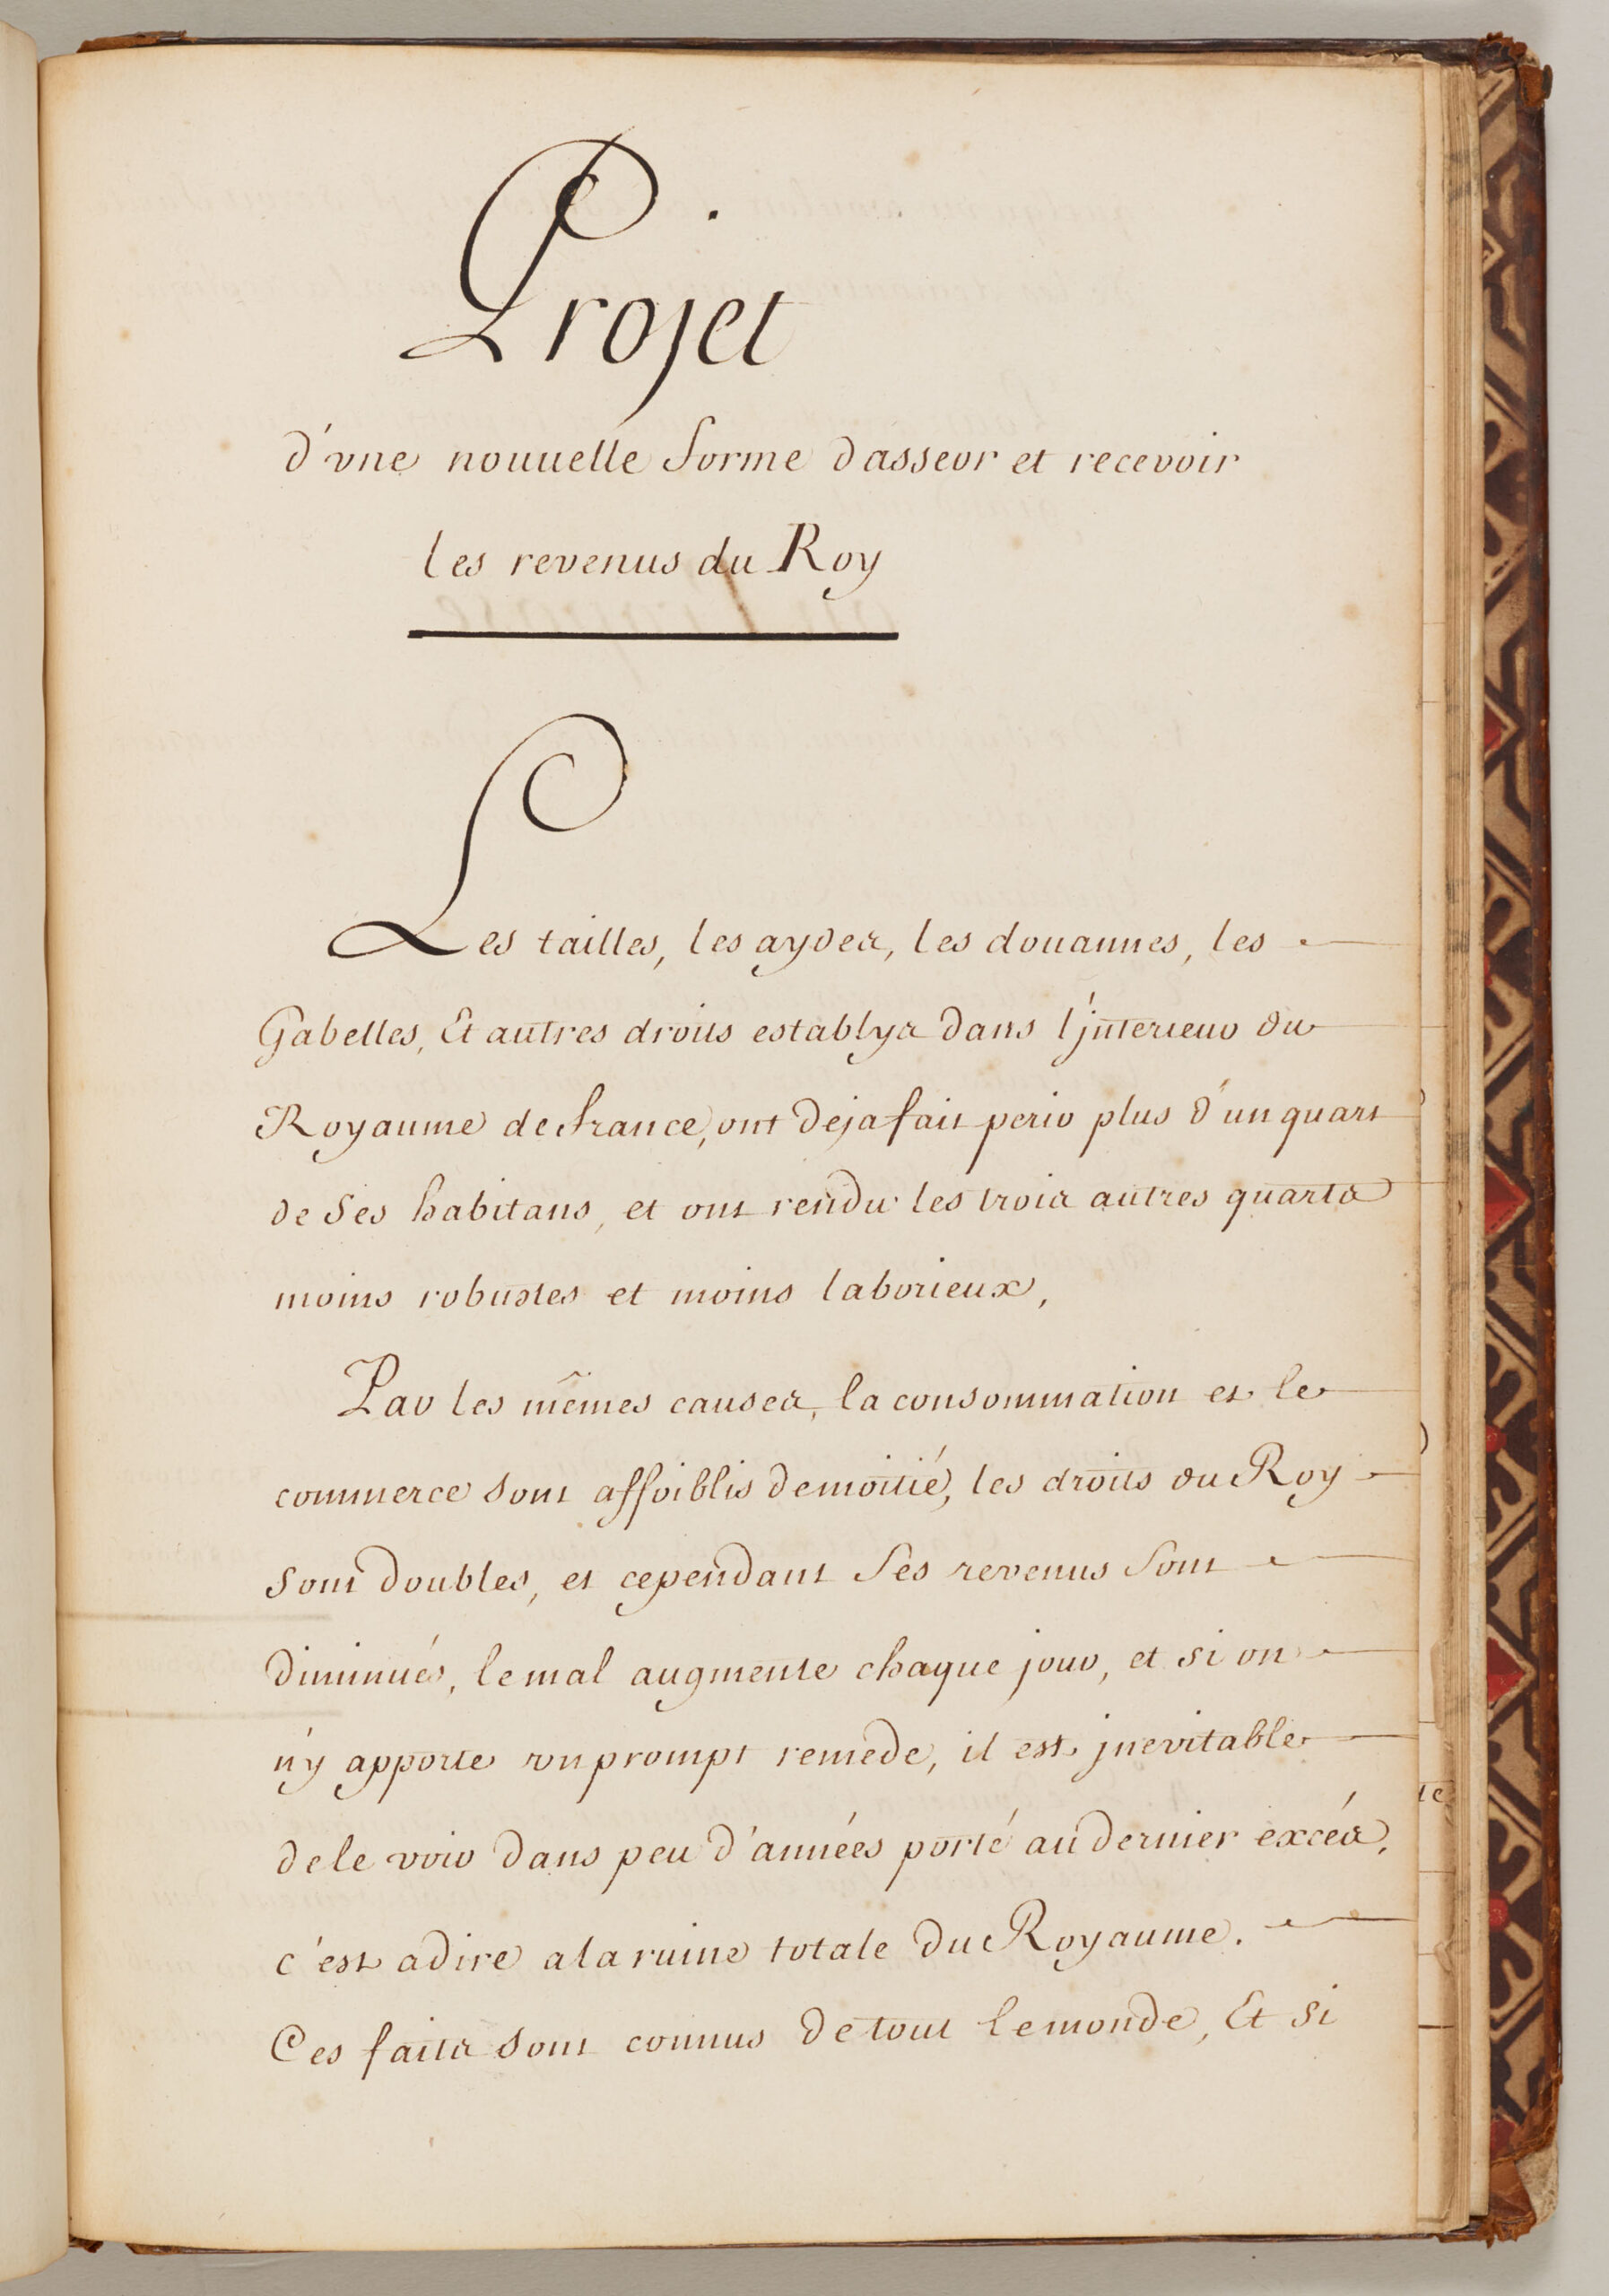 Projet
d'vne nouuelle forme dasseor et recevoir
les revenus du Roy
Les tailles, les aydes, les douannes, les
Gabelles, Et autres droits establys dans l'jnterieur du
Royaume de france, ont deja fait perir plus d'un quart
de ses habitans, et ont rendu les trois autres quarts
moins robustes et moins laborieux,
Par les mêmes causes, la consommation et le
commerce sont affoiblis de moitié, les droits du Roy
sont doubles, et cependant ses revenus sont
diminués, le mal augmente chaque jour, et si on
n'y apporte vn prompt remede, il est jnevitable
de le voir dans peu d'années porté au dernier excés,
c'est adire a la ruine totale du Royaume.
Ces faits sont connus de tout le monde, Et si